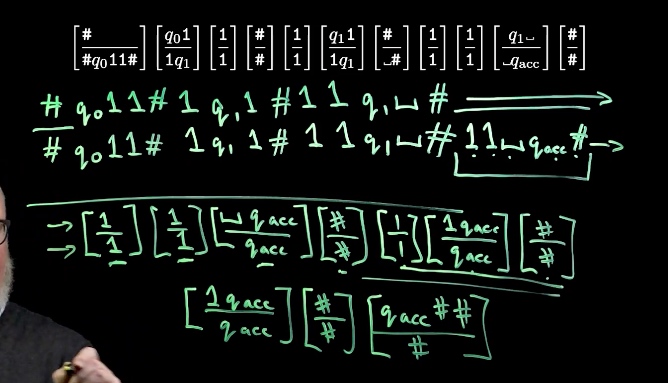 [#/#q₀11#] [q₀1/1q₁] [1/1] [#/#] [1/1] [q₁1/1q₁] [#/␣#] [1/1] [1/1] [q₁␣/␣q_acc] [#/#]
# q₀11# 1 q₁1 #11 q₁␣#
# q₀11# 1q₁1# 11 q₁␣# 11␣q_acc#
[1/1] [1/1] [␣q_acc/q_acc] [#/#] [1/1] [1q_acc/q_acc] [#/#]
[1q_acc/q_acc] [#/#] [q_acc##/#]